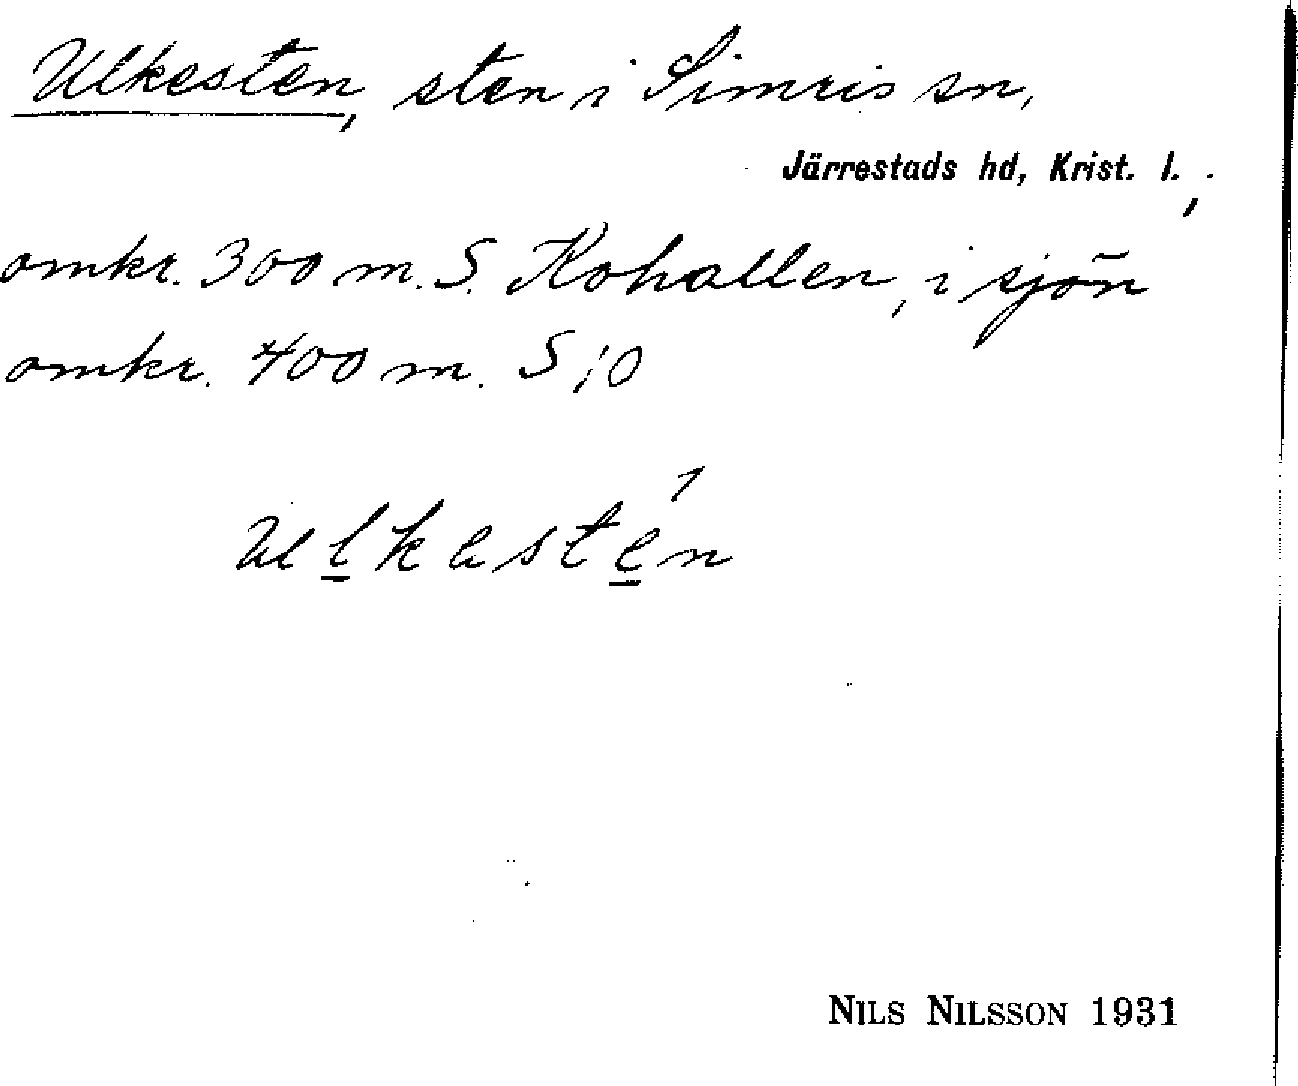 Ulkesten, sten i Simris sn,
Järrestads hd, Krist. l.,
omkr. 300 m. S. Kohallen, i sjön
omkr. 400 m. S; O
ulkestén
NILS NILSSON 1931